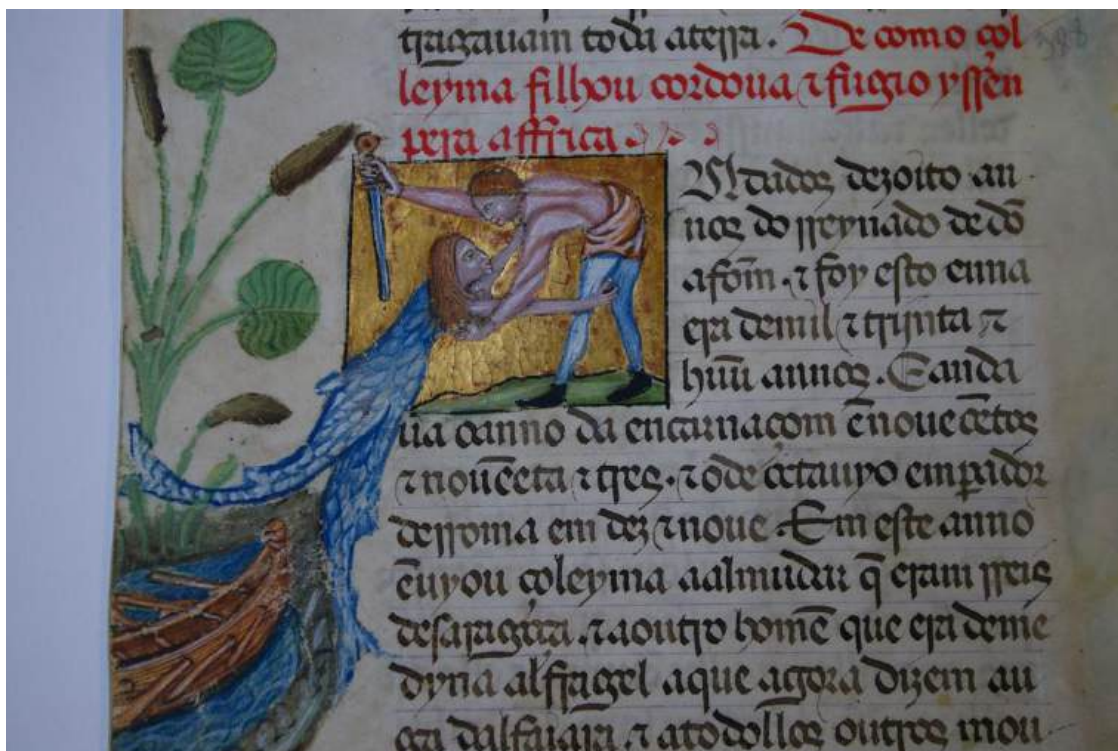 tragauam toda aterra. De como çol
leyma filhou cordoua ⁊ fugio yssen
pera affrica
Andados dezoito an
nos do rreynado de dõ
afom̃. ⁊ foy esto enna
era demil ⁊ trijnta ⁊
hũu annos. E anda
ua oanno da encarnaçom ẽ noueçẽtos
⁊ nouẽeta ⁊ tres. ⁊ o de octauyo emꝑador
derroma em dez ⁊ noue. Em este anno
ẽuyou çoleyma aalmudar q̃ eram rreis
desaragoça. ⁊ aoutro homẽ que era deme
dyna alffagel aque agora dizem au
ata dalfaiara. ⁊ atodollos outros mou